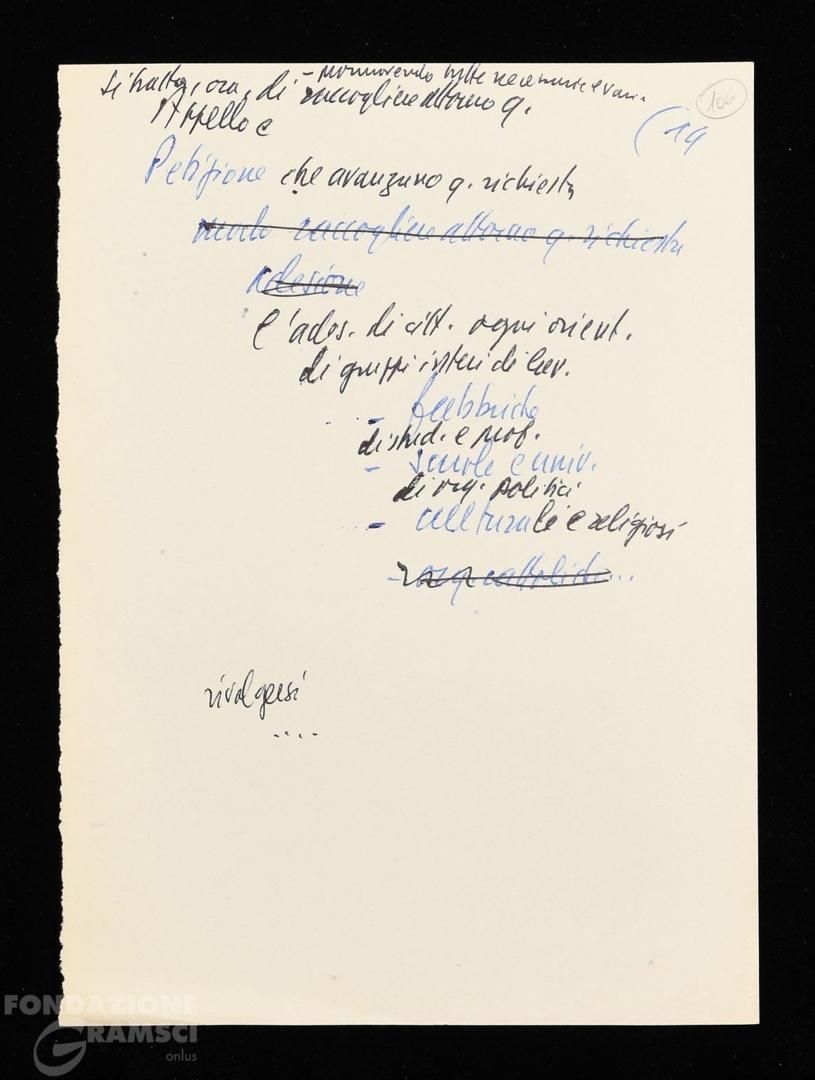 - promuovendo tutte le
si tratta, ora, di raccogliere attorno q.
106
(14
Appello e
Petizione che avanzano q. richiesta
modo raccogliere attorno q. richiesta
Adesione
l'ades. di citt. ogni orient.
di gruppi interi di lav.
- fabbriche
di stud. e prof.
- scuole e univ.
di org. politici
- culturali e religiosi
- org. cattoliche...
rivolgersi
....
FONDAZIONE
GRAMSCI
onlus